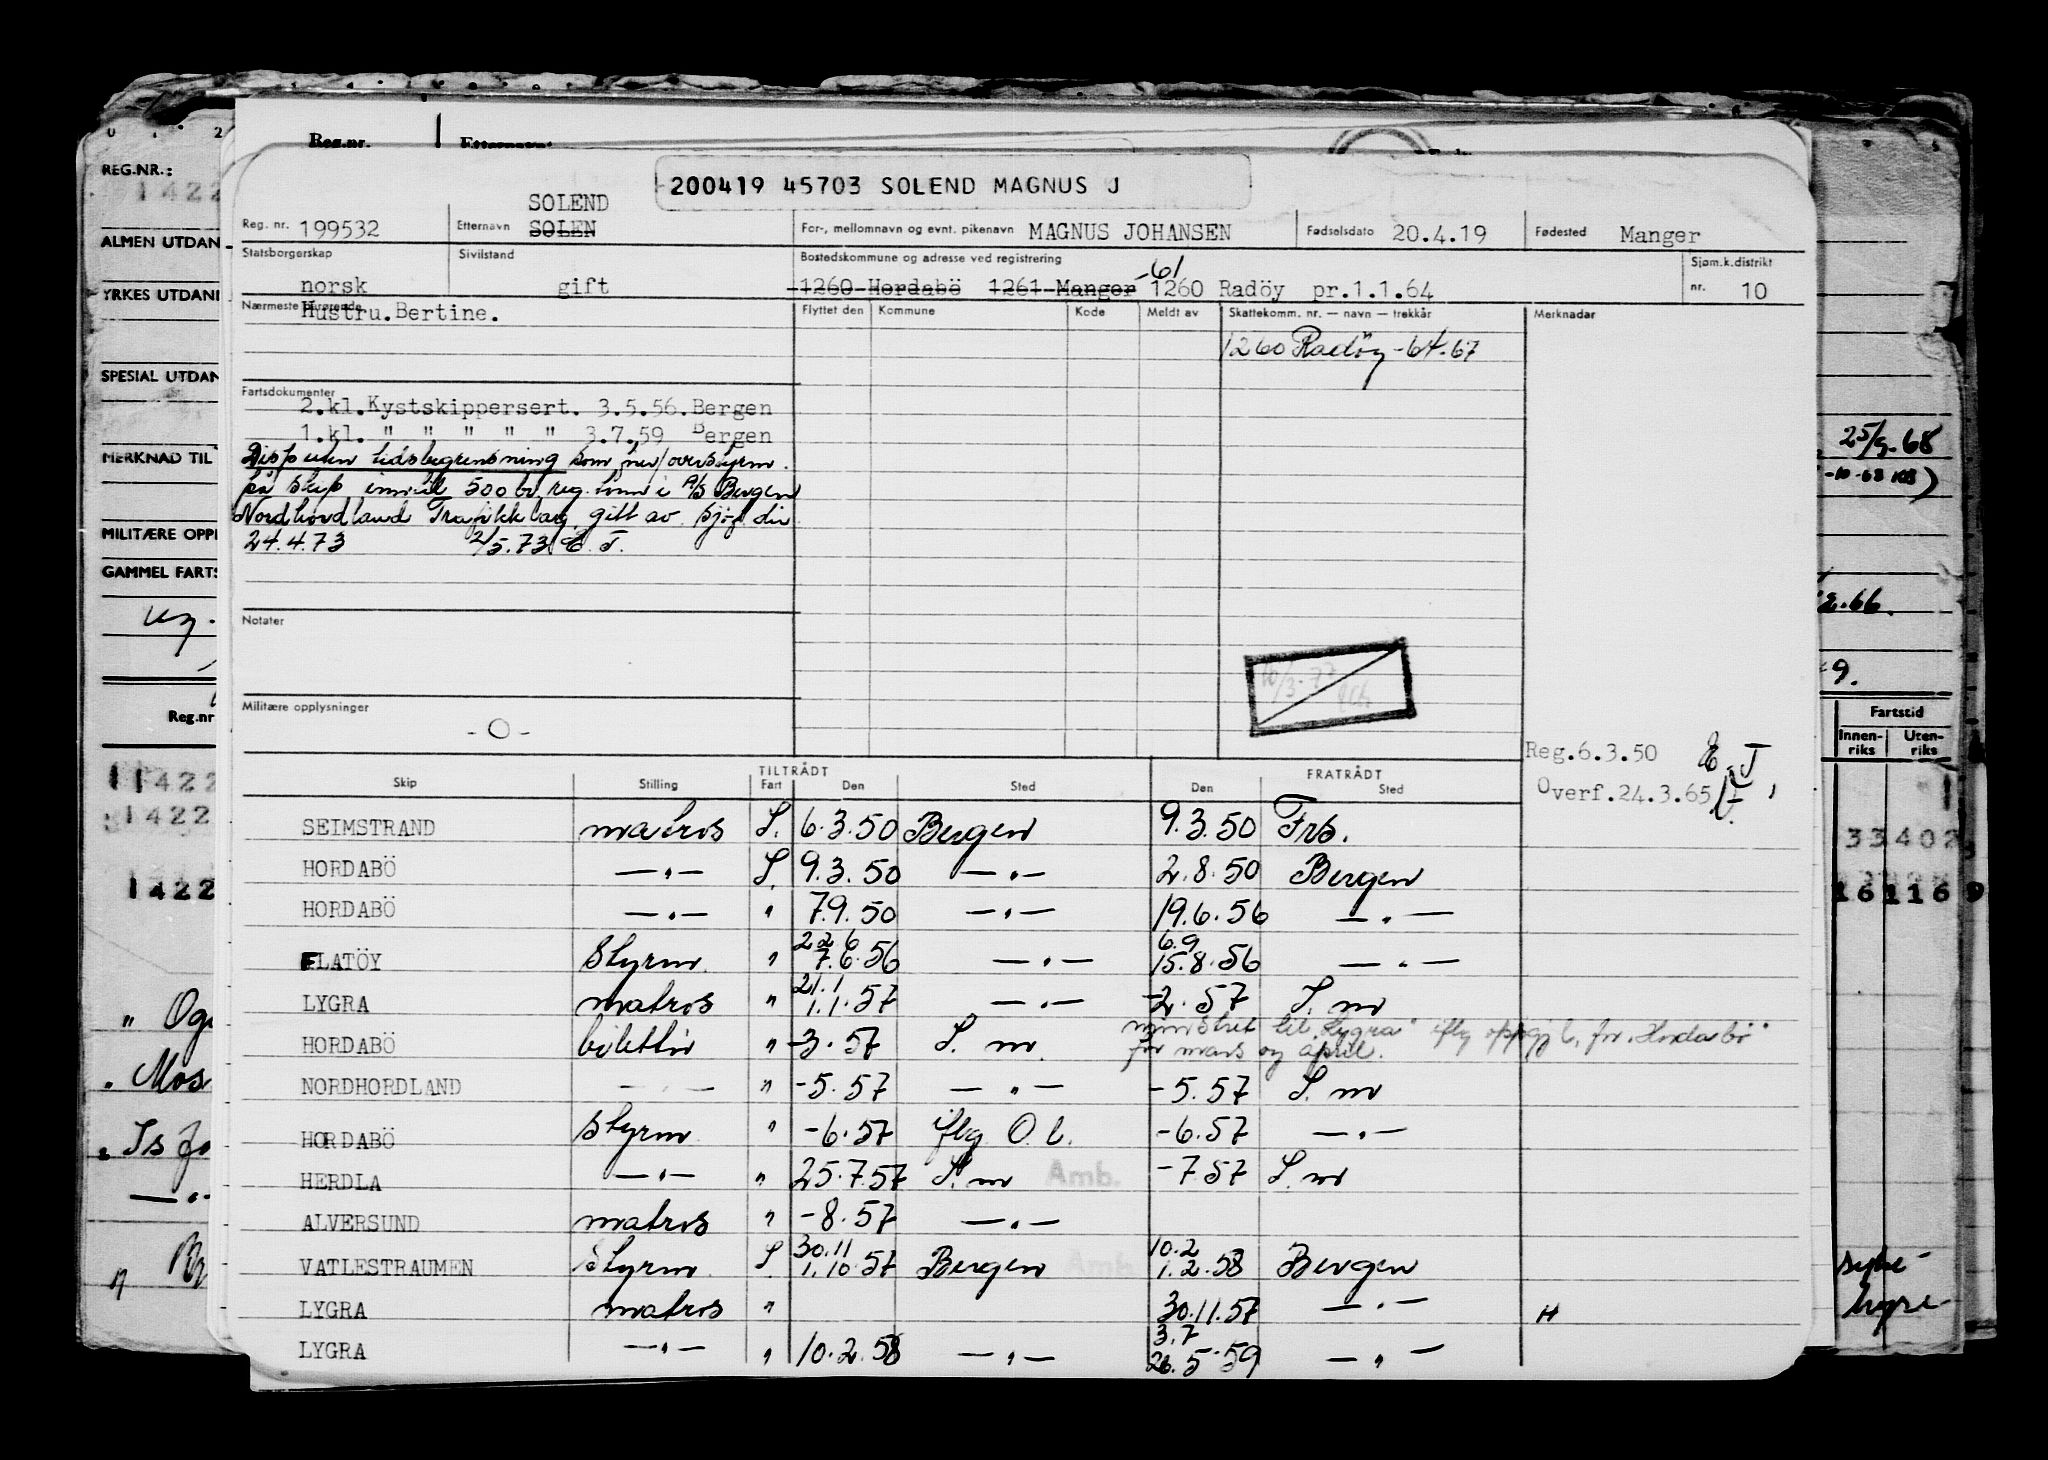 Reg.nr. Etternavn:
REG.NR.:
1422
ALMEN UTDAN
YRKES UTDANI
SPESIAL UTDAN
MERKNAD TIL
MILITÆRE OPPI
GAMMEL FARTS
Reg.nr
11422
1422
1422
" Og
. Mos
. Is
— " —
200419 45703 SOLEND MAGNUS J
SOLEND
Reg. nr. 199532 Etternavn SOLEN For-, mellomnavn og evnt. pikenavn MAGNUS JOHANSEN Fødselsdato 20.4.19 Fødested Manger
Statsborgerskap Sivilstand Bostedskommune og adresse ved registrering Sjøm.k.distrikt
norsk gift 1260 Herdabö 1261 Manger -61 1260 Radöy pr.1.1.64 nr. 10
Nærmeste pårørende Hustru.Bertine. Flyttet den Kommune Kode Meldt av Skattekomm. nr. — navn — trekkår Merknadar
1260 Radöy -64-67
Fartsdokumenter
2.kl.Kystskippersert. 3.5.56.Bergen
1.kl. " " " " " 3.7.59 Bergen
Disp uten tidsbegrensning som nav/overstyrm.
på skip inntil 500 br. reg. tonn i A/S Bergen
Nordhordland Trafikklag, gitt av sjöf. dir
24.4.73 2/5.73 E. T.
Notater
Militære opplysninger
- O -
Reg.6.3.50 E. T
Overf.24.3.65
TILTRÅDT FRATRÅDT
Skip Stilling Fart Den Sted Den Sted
SEIMSTRAND matros S. 6.3.50 Bergen 9.3.50 Frb.
HORDABÖ — " — S. 9.3.50 — " — 2.8.50 Bergen
HORDABÖ — " — " 7.9.50 — " — 19.6.56 — " —
FLATÖY Styrm. " 22.6 7.6.56 — " — 6.9 15.8.56 — " —
LYGRA matros " 21.1 1.1.57 — " — -2.57 S. m
HORDABÖ billettör " -3.57 S. m. mönstret til "Lygra" iflg oppgj l. for "Hordabö"
for mars og april.
NORDHORDLAND — " — " -5.57 — " — -5.57 S. m
HORDABÖ Styrm. " -6.57 iflg. O. l. -6.57 — " —
HERDLA — " — " 25.7.57 S. m Amb. -7.57 S. m
ALVERSUND matros " -8.57 — " —
VATLESTRAUMEN Styrm. S. 30.11 1.10.57 Bergen Amb 10.2 1.2.58 Bergen
LYGRA matros " 30.11.57 — " — H
LYGRA — " — " 10.2.58 — " — 3.7 26.5.59 — " —
25/9-68
-10-68
2.66.
9.
Fartstid
Innen-riks Uten-riks
33402
161169
hyre